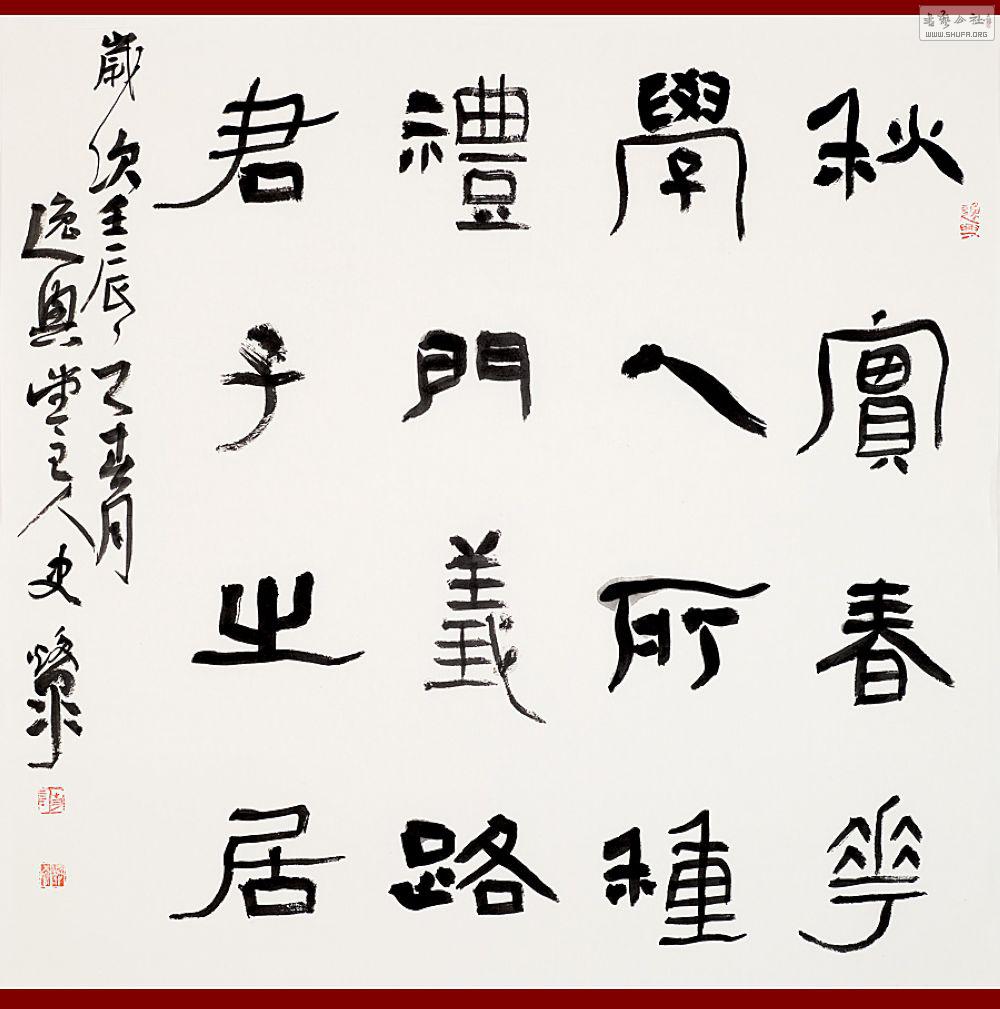 秋實春華
學人所種
禮門義路
君子之居
歲次壬辰之春月
逸興堂主人史榮
書藝公社
WWW.SHUFA.ORG